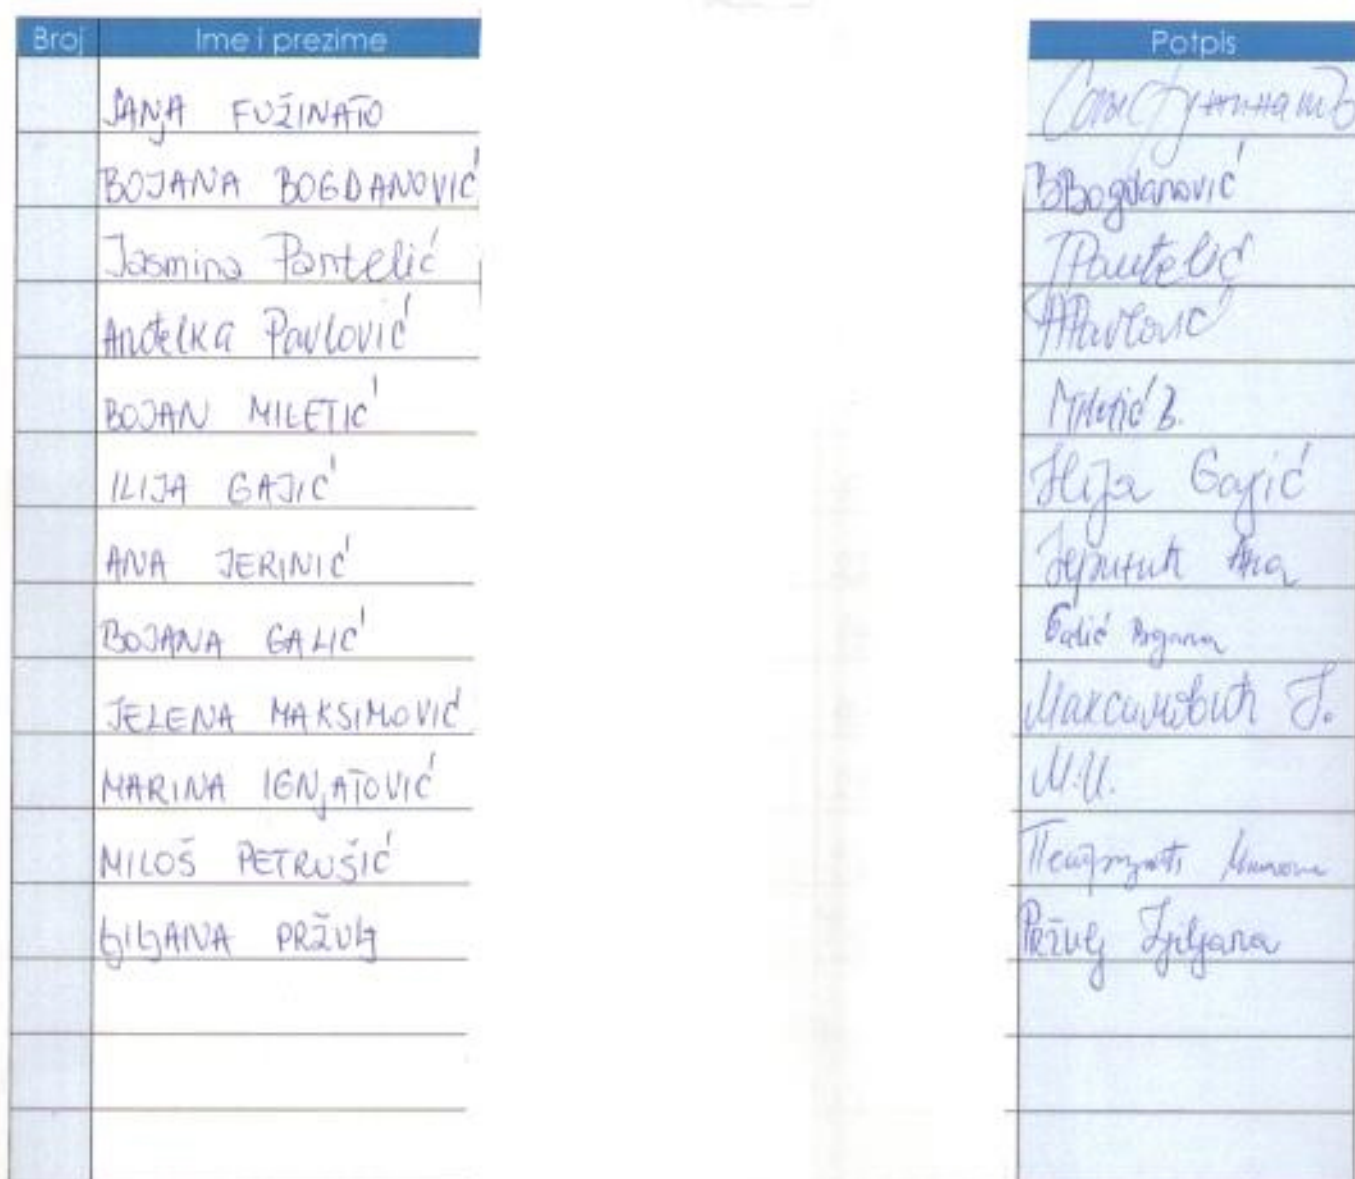 Broj Ime i prezime Potpis
SANJA FUŽINATO
BOJANA BOGDANOVIĆ BBogdanović
Jasmina Pantelić JPantelić
Anđelka Pavlović APavlović
BOJAN MILETIĆ Miletić B.
ILIJA GAJIĆ Ilija Gajić
ANA JERINIĆ Јеринић Ана
BOJANA GALIĆ Galić Bojana
JELENA MAKSIMOVIĆ Максимовић Ј.
MARINA IGNJATOVIĆ М.И.
MILOŠ PETRUŠIĆ
LJILJANA PRŽULJ PRŽULJ Ljiljana